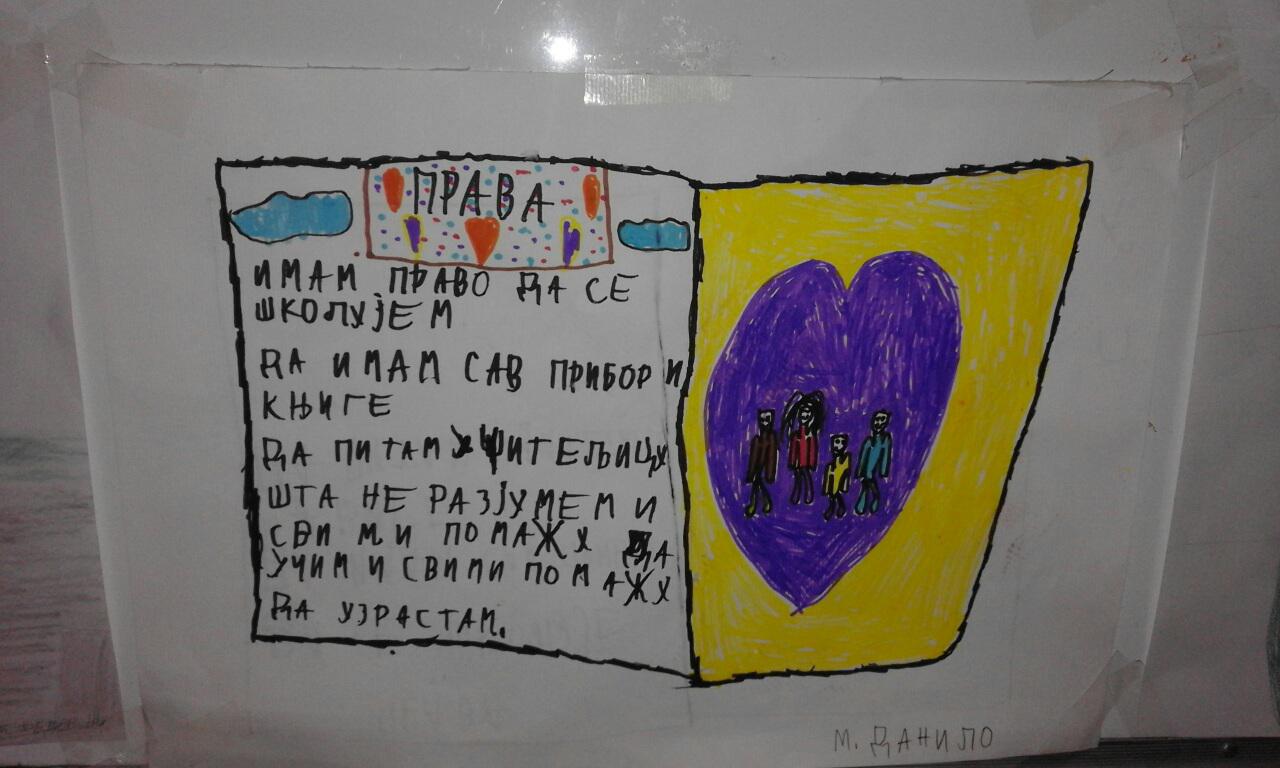 ПРАВА
ИМАМ ПРАВО ДА СЕ
ШКОЛУЈЕМ
ДА ИМАМ САВ ПРИБОР И
КЊИГЕ
ДА ПИТАМ УЧИТЕЉИЦУ
ШТА НЕ РАЗЈУМЕМ И
СВИ МИ ПОМАЖУ ДА
УЧИМ И СВИ МИ ПОМАЖУ
ДА УЗРАСТАМ.
М. ДАНИЛО